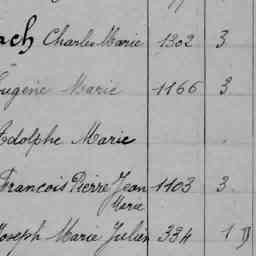 ach Charles Marie 1302 3
Eugène Marie 1166 3
Adolphe Marie
François Pierre Jean 1103 3
Marie
Joseph Marie Julien 334 1